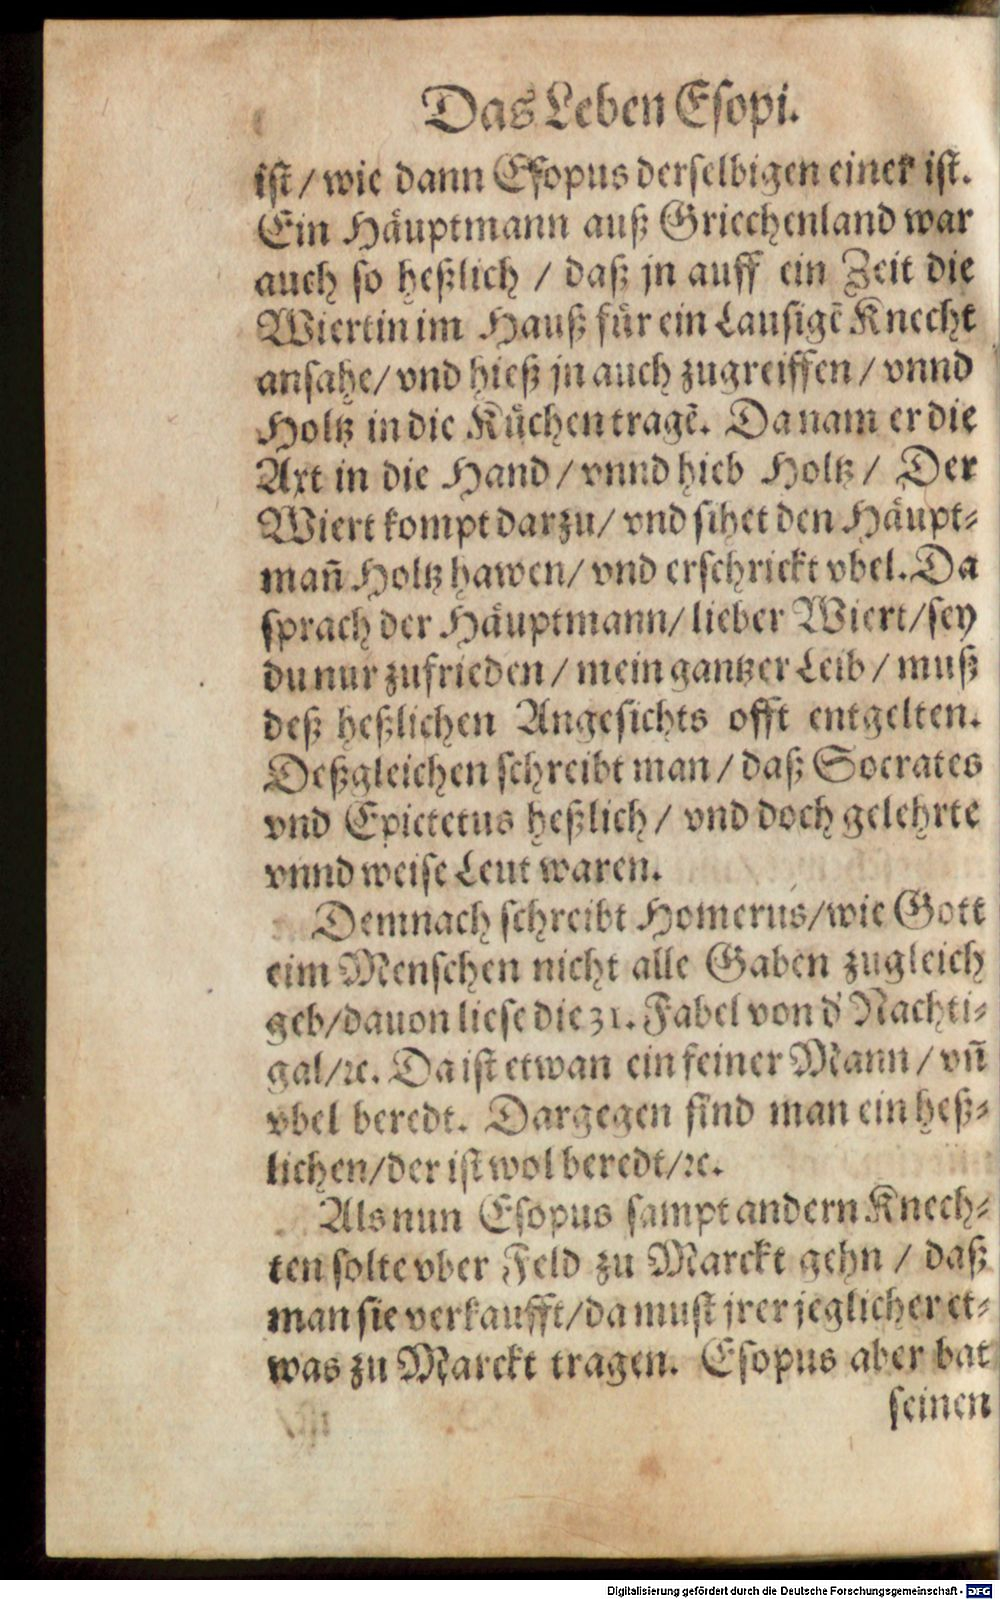 Das Leben Esopi.
ist / wie dann Esopus derselbigen einer ist.
Ein Häuptmann auß Griechenland war
auch so heßlich / daß jn auff ein Zeit die
Wiertin im Hauß für ein Lausigẽ Knecht
ansahe/ vnd hieß jn auch zugreiffen / vnnd
Holtz in die Küchen tragẽ. Da nam er die
Axt in die Hand / vnnd hieb Holtz / Der
Wiert kompt darzu/ vnd sihet den Häupt⸗
mañ Holtz hawen/ vnd erschrickt vbel. Da
sprach der Häuptmann/ lieber Wiert/ sey
du nur zufrieden / mein gantzer Leib / muß
deß heßlichen Angesichts offt entgelten.
Deßgleichen schreibt man / daß Socrates
vnd Epictetus heßlich / vnd doch gelehrte
vnnd weise Leut waren.
Demnach schreibt Homerus/wie Gott
eim Menschen nicht alle Gaben zugleich
geb/dauon liese die 31. Fabel von d' Nachti⸗
gal/ꝛc. Da ist etwan ein feiner Mann / vñ
vbel beredt. Dargegen find man ein heß⸗
lichen/der ist wol beredt/ꝛc.
Als nun Esopus sampt andern Knech⸗
ten solte vber Feld zu Marckt gehn / daß
man sie verkaufft/da must jrer jeglicher et⸗
was zu Marckt tragen. Esopus aber bat
seinen
Digitalisierung gefördert durch die Deutsche Forschungsgemeinschaft - DFG